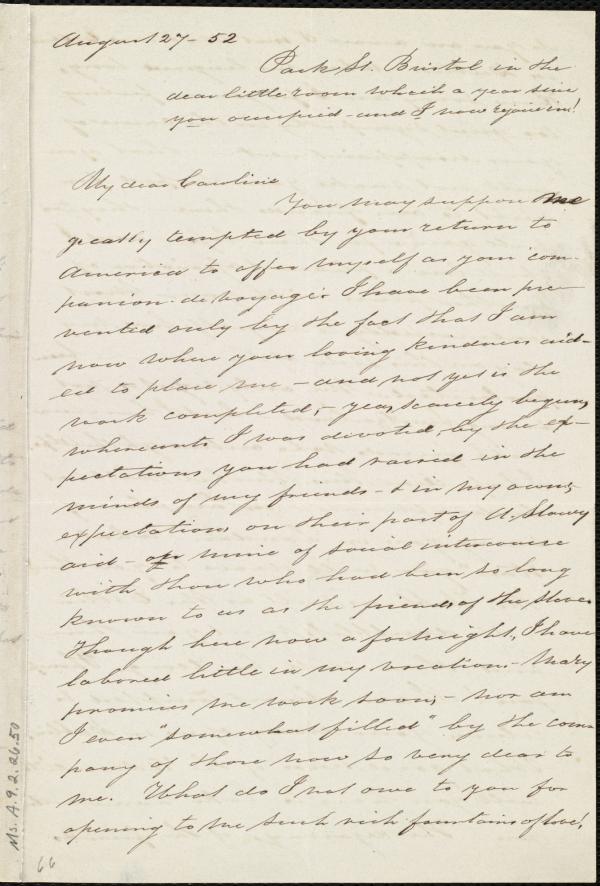 August 27 - 52
Park St. Bristol in the
dear little room which a year since
you occupied - and I now rejoice in!
My dear Caroline
You may suppose me
greatly tempted by your return to
America to offer myself as your com-
panion-de-voyage: I have been pre-
vented only by the fact that I am
now where your loving kindness aid-
ed to place me - and not yet is the
work completed, - yea, scarcely begun,
whereunto I was devoted, by the ex-
pectations you had raised in the
minds of my friends - & in my own;
expectations on their part of A. Slavery
aid - of mine of social intercourse
with those who had been so long
known to us as the friends of the slave.
Though here now a fortnight, I have
labored little in my vocation. - Mary
promises me work soon; - nor am
I even "somewhat filled" by the com-
pany of those now so very dear to
me. What do I not owe to you for
opening to me such rich fountains of love!
Ms. A. 9. 2. 26. 50
66